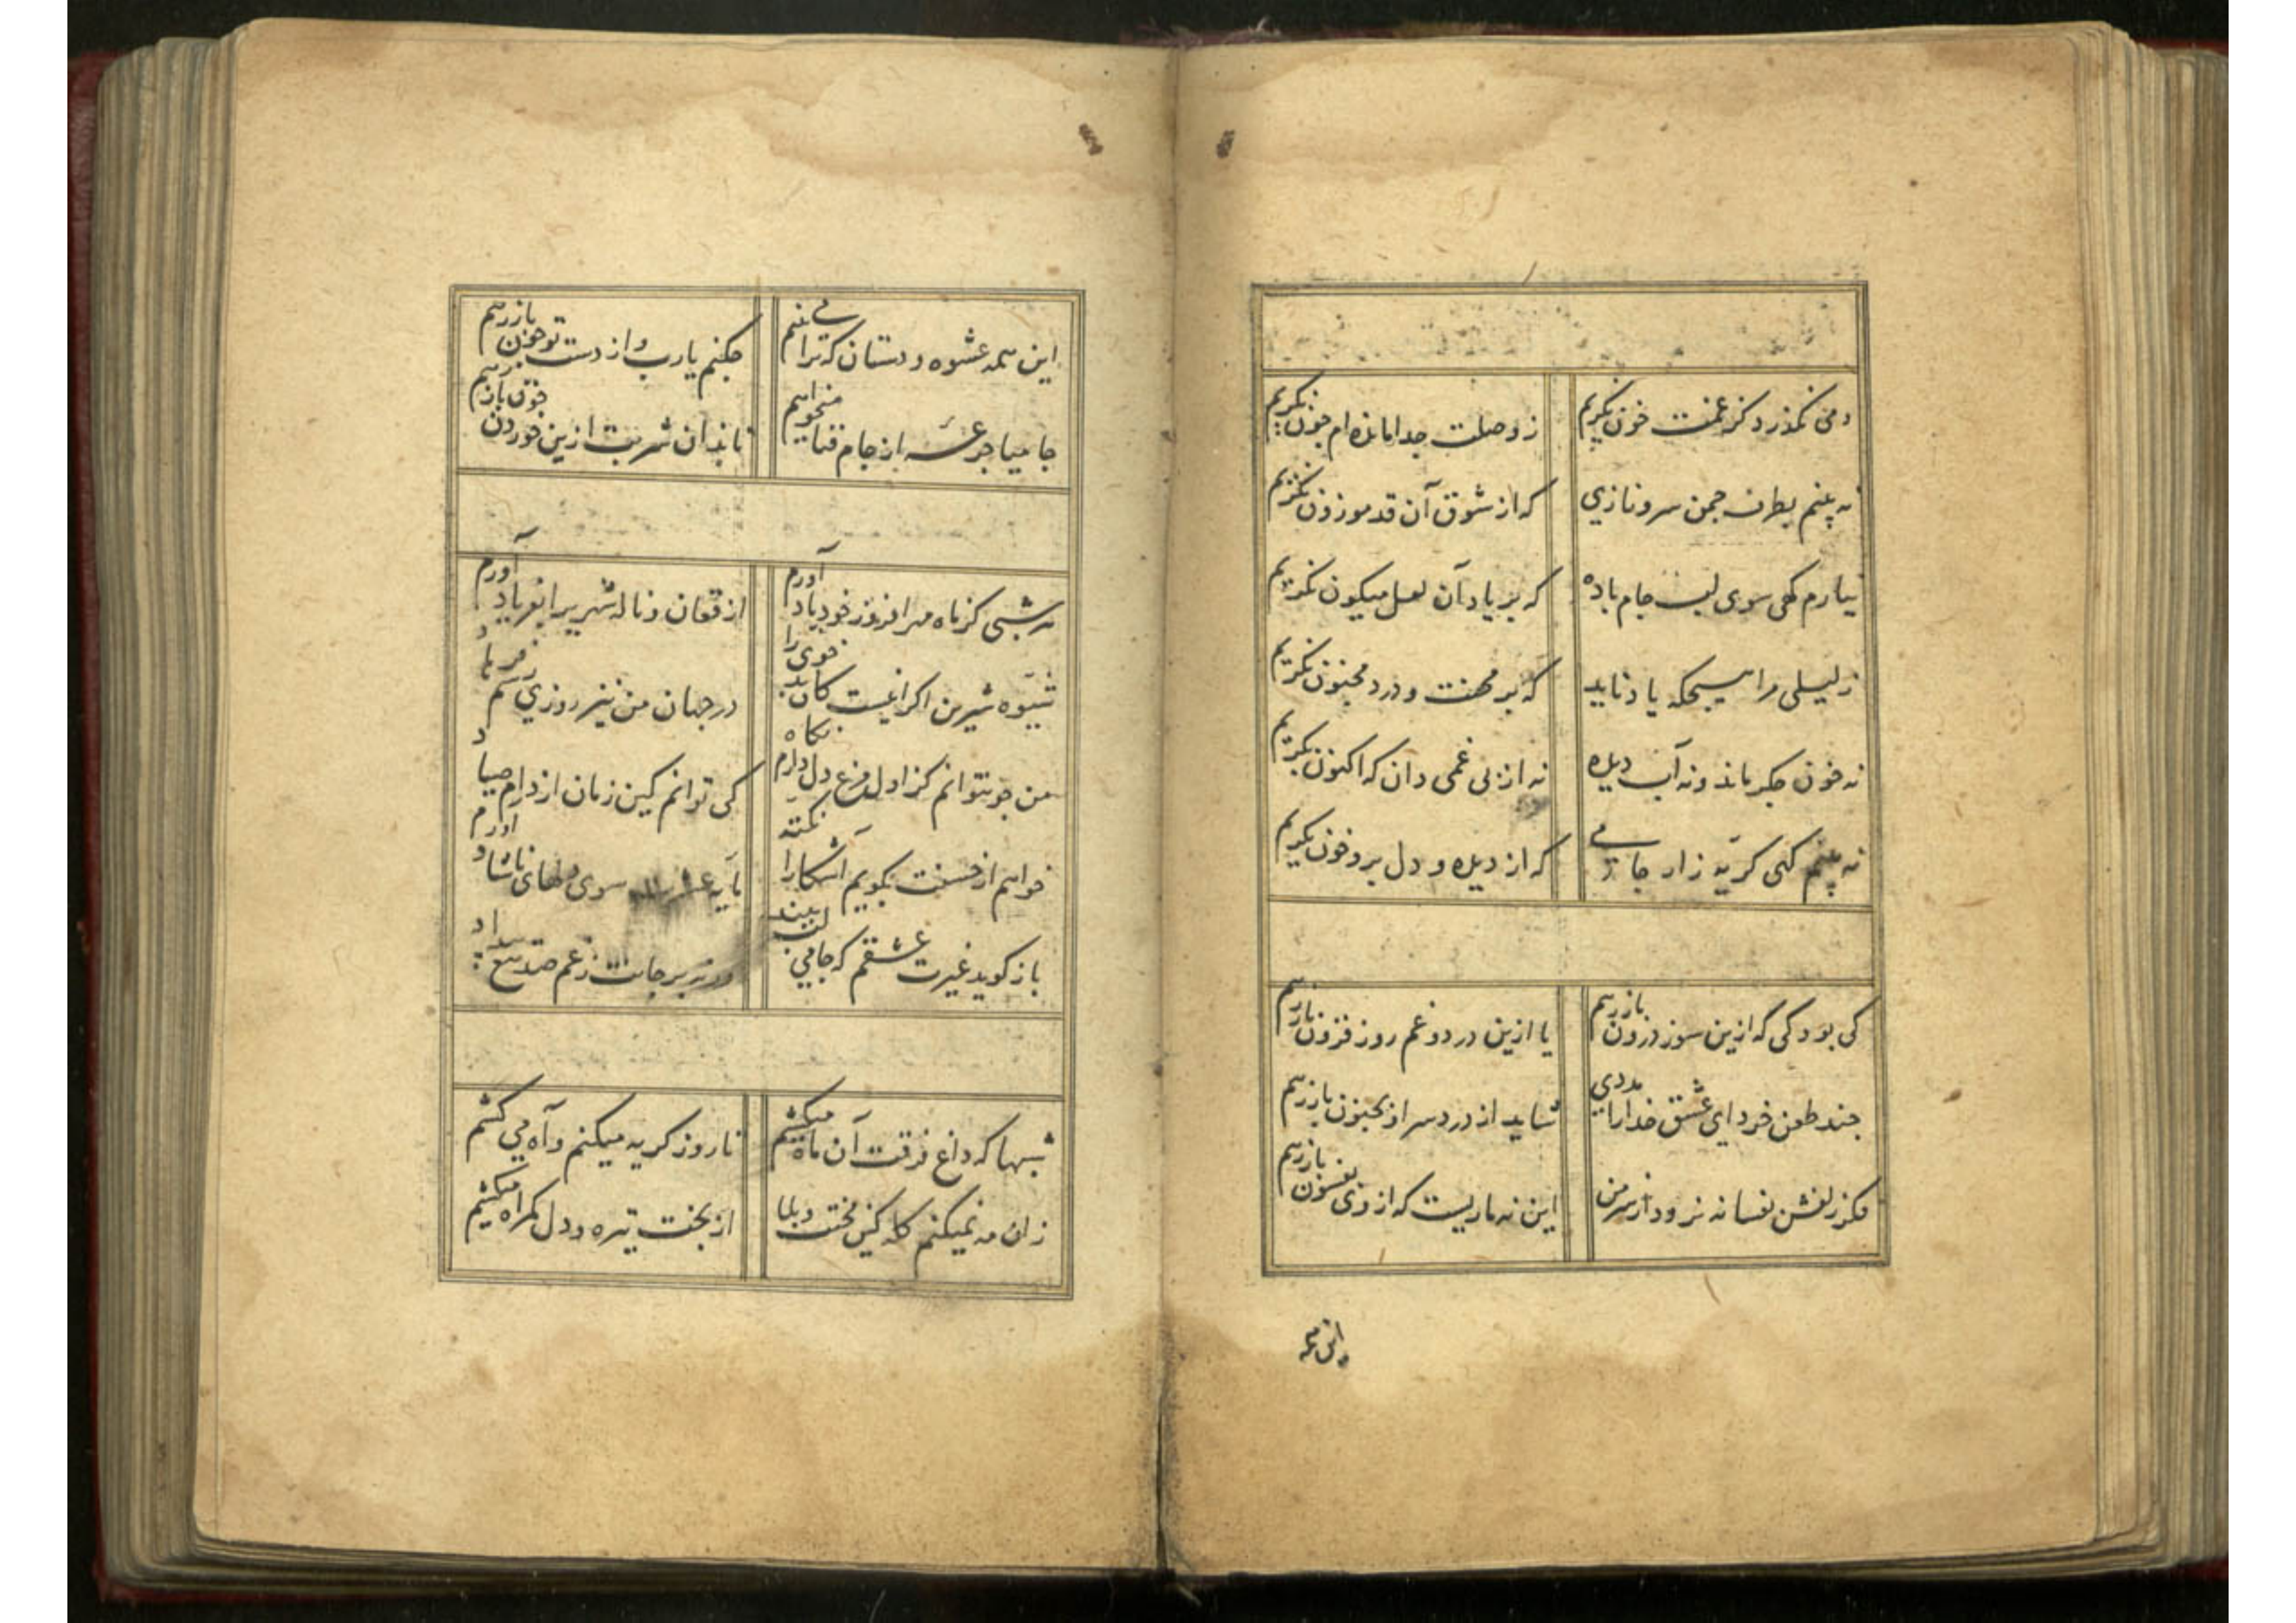 دمی نگذرد کز غمت خون نگریم
ز وصلت جدا مانده ام چون نگریم
نه بینم بطرف چمن سرو نازی
که از شوق آن قد موزون نگریم
نیارم کهی سوی لب جام باده
که بر یاد آن لعل میکون نگریم
ز لیلی مرا هیچکه یاد ناید
که بر محنت و درد مجنون نگریم
نه خون جکر ماند و نه آب دیده
نه از بی غمی دان که اکنون نگریم
نه بینم کهی کریه زار جامی
که از دیده و دل برو خون نگریم
کی بود کی که ازین سوز درون بازرهم
یا ازین درد و غم روز فزون بازرهم
چند طعن خرد ای عشق خدا را مددی
شاید از درد سر او بجنون بازرهم
فکر زلفش بفسانه نرود از سر من
این نه ماریست که از وی بفسون بازرهم
این همه
این همه عشوه و دستان که ترا می بینم
چکنم یارب و از دست تو چون بازرهم
جامیا جرعه از جام فنا میخواهم
تا بدان شربت ازین خوردن خون بازرهم
هر شبی کز ماه مهر افروز خود یاد آورم
از فغان و ناله شهریرا بفریاد آورم
شیوه شیرین اکر اینست کان بدخوی را
در جهان من نیز روزی رسم فرهاد
من چو نتوانم کز اول مرغ دل دارم نکاه
کی توانم کین زمان از دام صیاد آورم
خواهم از حسنت بکویم آشکارا نکته
مایه سوی دلهای ناشاد
باز کوید غیرت عشقم که جامی لب ببند
ورنه بر جانت ز غم صد تیغ بیداد
شبها که داغ فرقت آن ماه میکشم
تا روز کریه میکنم و آه می کشم
زان مه نمیکنم کله کین محنت و بلا
از بخت تیره و دل کمراه میکشم